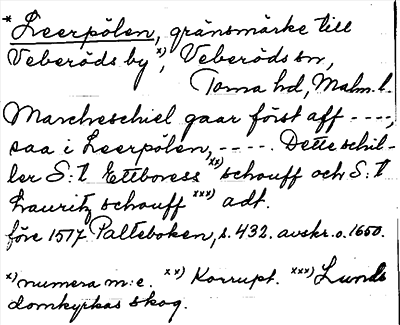 * Leerpölen, gränsmärke till
Veberöds by x), Veberöds sn,
Torna hd, Malm. l.
Marcheschiel gaar först aff ----,
saa i Leerpölen, -----. Dette schil-
ler S:t Ettboress xx) schouff och S:t
Lauritz schouff xxx) adt.
före 1517 Palteboken, s. 432. avskr. o. 1650.
x) numera m:e. xx) Korrupt. xxx) Lunds
domkyrkas skog.